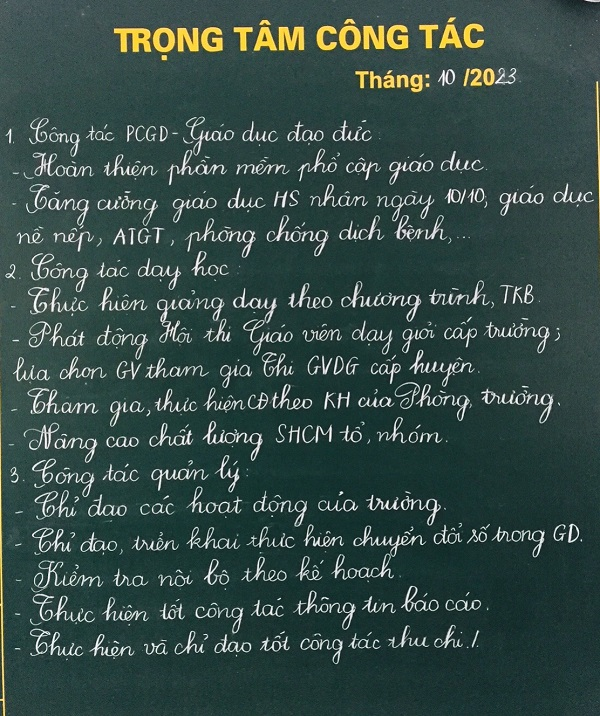 TRỌNG TÂM CÔNG TÁC
Tháng: 10 /2023
1. Công tác PCGD - Giáo dục đạo đức:
- Hoàn thiện phần mềm phổ cập giáo dục.
- Tăng cường giáo dục HS nhân ngày 10/10, giáo dục
nề nếp, ATGT, phòng chống dịch bệnh,...
2. Công tác dạy học:
- Thực hiện giảng dạy theo chương trình, TKB.
- Phát động Hội thi Giáo viên dạy giỏi cấp trường;
lựa chọn GV tham gia Thi GVDG cấp huyện.
- Tham gia, thực hiện CĐ theo KH của Phòng, trường.
- Nâng cao chất lượng SHCM tổ, nhóm.
3. Công tác quản lý:
- Chỉ đạo các hoạt động của trường.
- Chỉ đạo, triển khai thực hiện chuyển đổi số trong GD.
- Kiểm tra nội bộ theo kế hoạch.
- Thực hiện tốt công tác thông tin báo cáo.
- Thực hiện và chỉ đạo tốt công tác thu chi./.